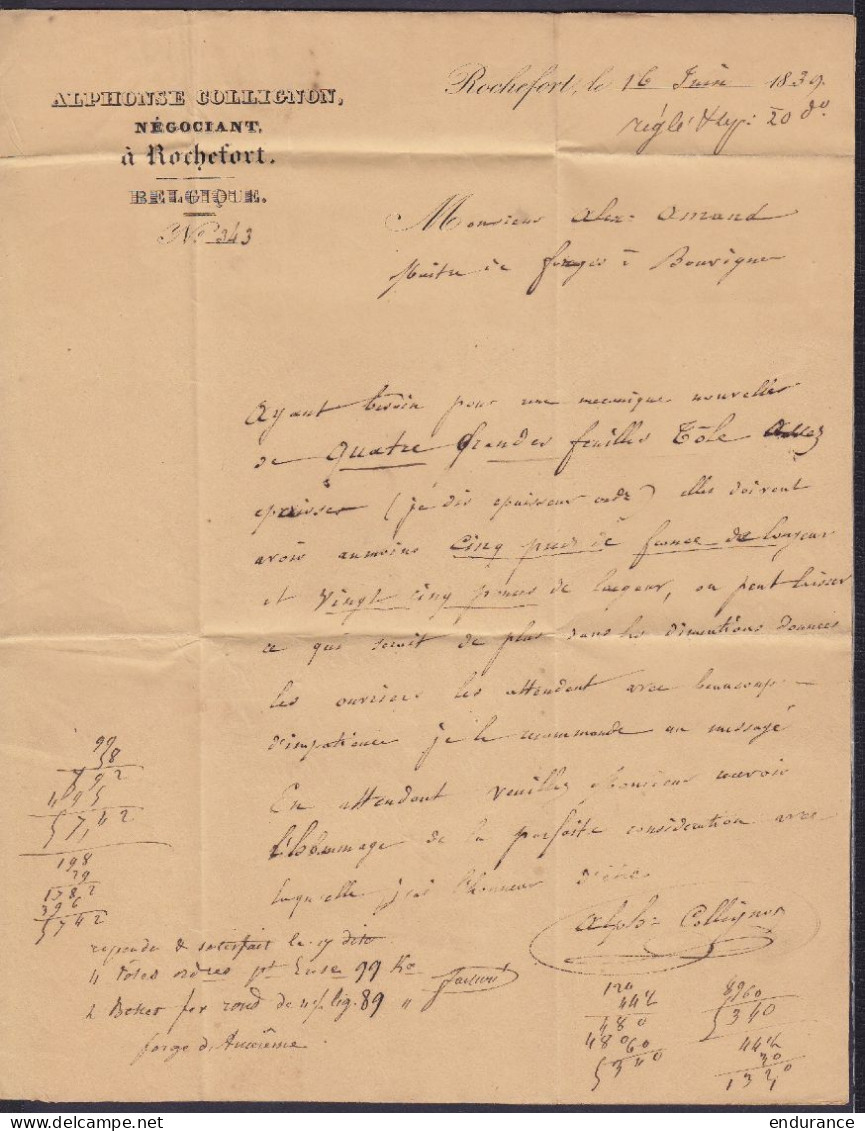 ALPHONSE COLLIGNON,
NÉGOCIANT,
à Rochefort.
BELGIQUE.
Nº 343
Rochefort, le 16 Juin 1839.
réglé 20 dº
Monsieur Alex: Amand
Maître de forges à Bouvigne
Ayant besoin pour une mecanique nouvelle
de Quatre Grandes feuilles Tôle assez
epaisses (je dis epaisseur ordre) elles doivent
avoir aumoins cinq pieds de france de longeur
et vingt cinq pouces de largeur, on peut laisser
ce qui serait de plus dans les dimentions données
les ouvriers les attendent avec beaucoup
d'impatience je le recommande au messagé
En attendant veuillez Monsieur recevoir
l'hommage de la parfaite consideration avec
laquelle j'ai l'honneur d'être.
Alph: Collignon
99
58
792
495
5742
198
29
1782
396
5742
repondu & satisfait le 17 dito
4 Tôles ordres pt Ense 99 Ko
2 Bottes fer rond de 4½ lig. 89 "
facturé
forge d'Anserême
120
44½
480
480
60
5340
8960
5340
44½
30
1320